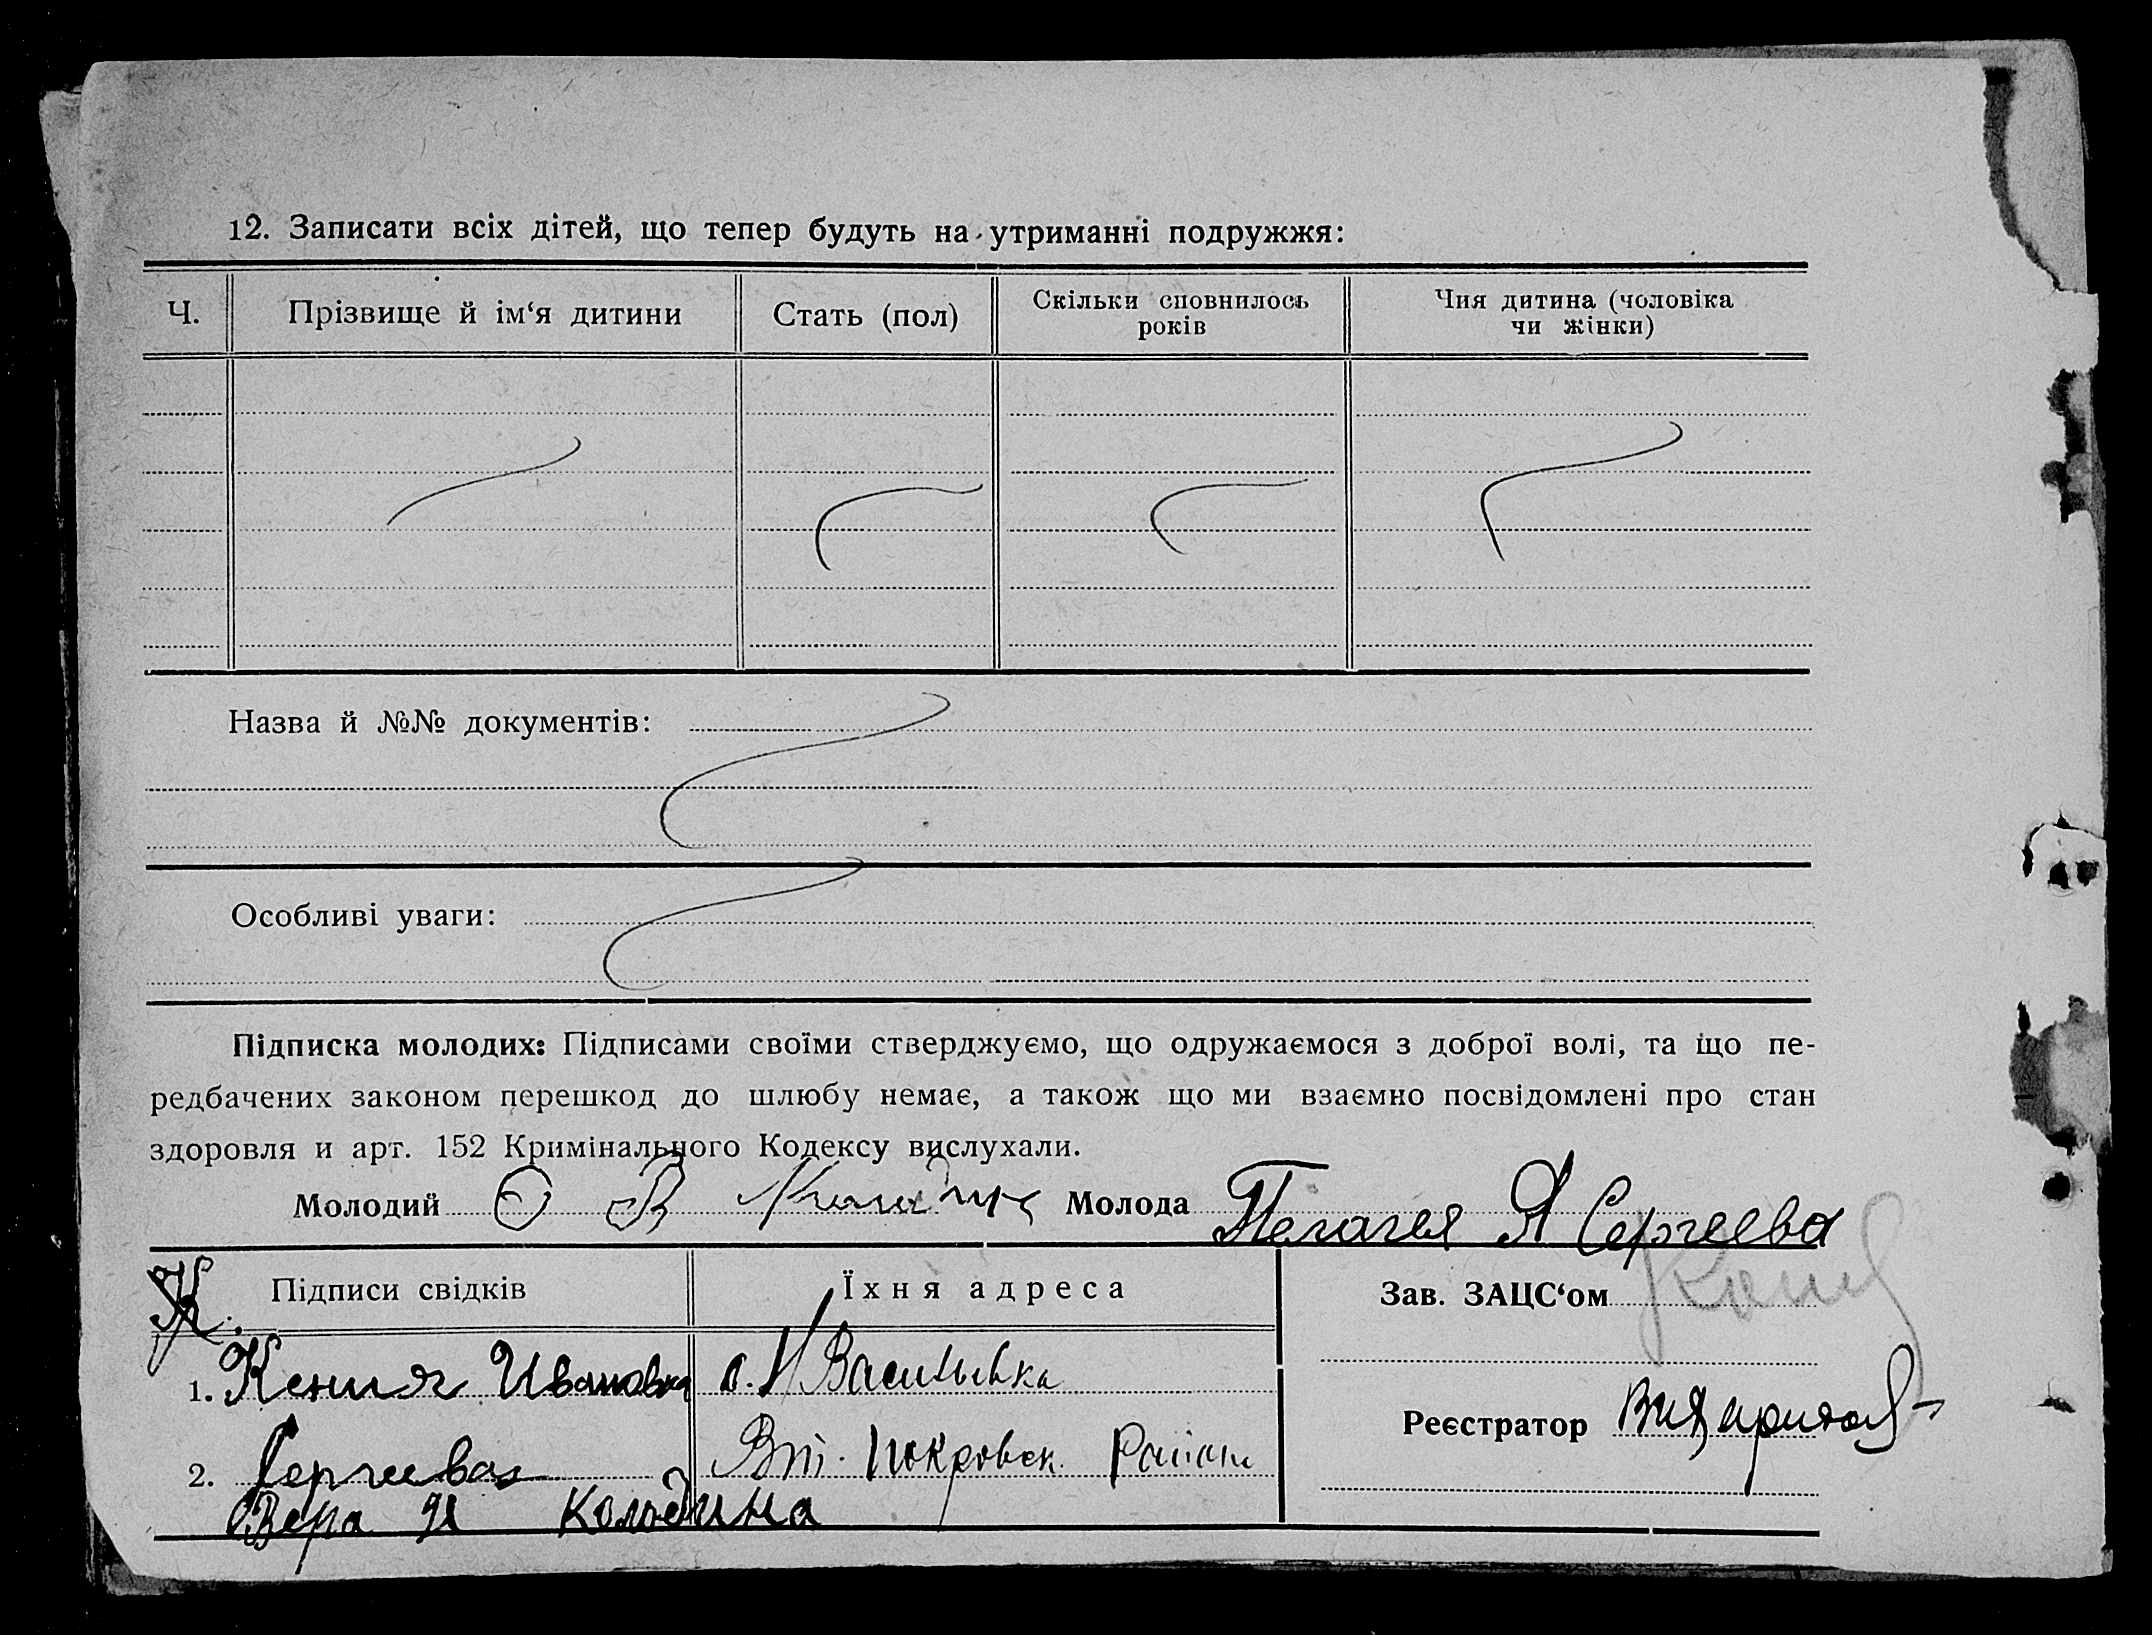 12. Записати всіх дітей, що тепер будуть на утриманні подружжя:
Ч. Прізвище й ім‘я дитини Стать (пол) Скільки сповнилось років Чия дитина (чоловіка чи жінки)
Назва й №№ документів:
Особливі уваги:
Підписка молодих: Підписами своїми стверджуємо, що одружаємося з доброї волі, та що пе-
редбачених законом перешкод до шлюбу немає, а також що ми взаємно посвідомлені про стан
здоровля и арт. 152 Кримінального Кодексу вислухали.
Молодий О В Молода Пелагея Я Сергеева
Підписи свідків Їхня адреса Зав. ЗАЦС‘ом
1. Ксния Ивановна с. Н Васильевка
Реєстратор
2. Сергеева Вт. Покровск. Район
Вера И Колодина